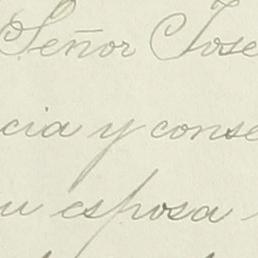 Señor Jose
cia y conse
u esposa